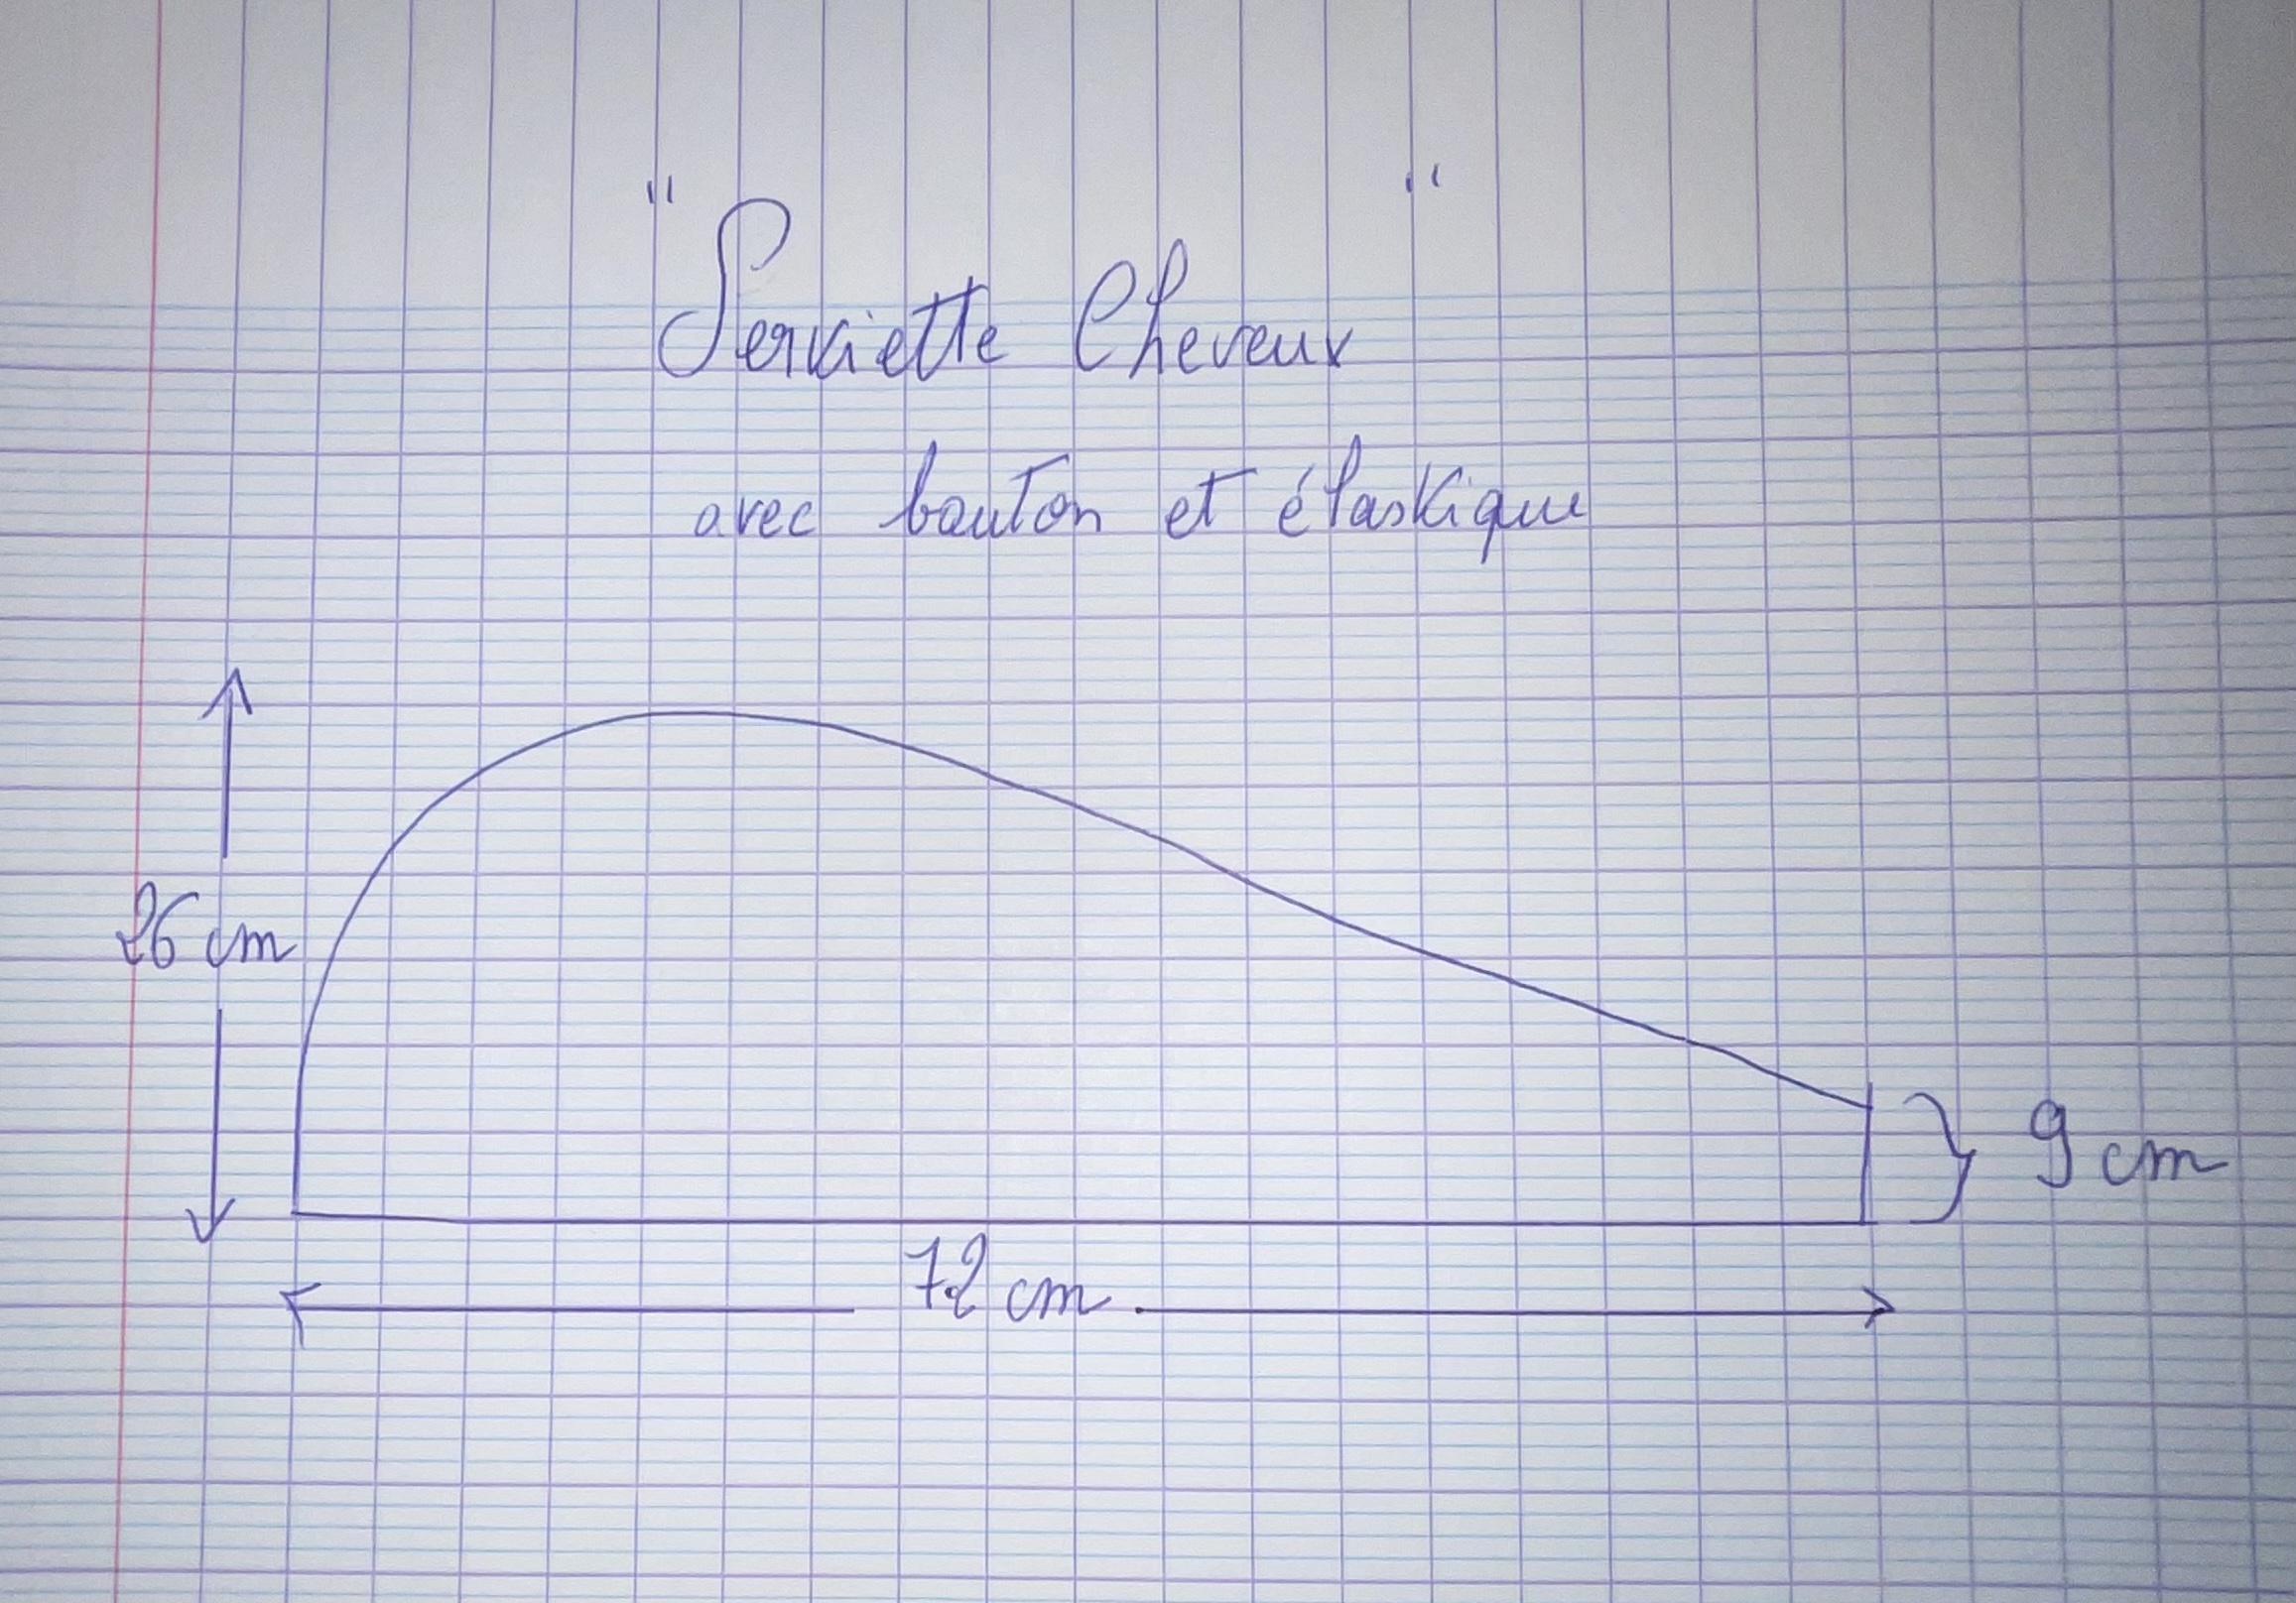 "Serviette Cheveux"
avec bouton et élastique
26 cm
9 cm
72 cm